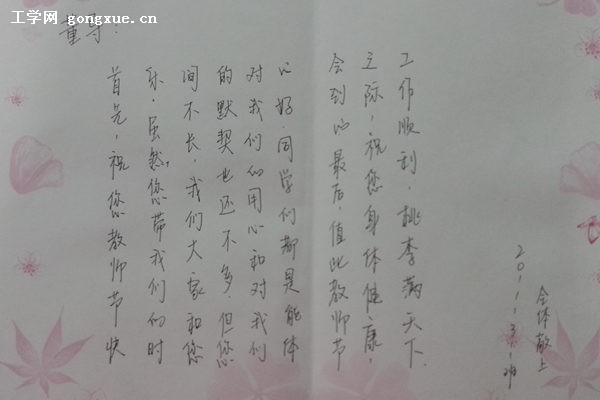 工学网 gongxue.cn
董导：
首先，祝您教师节快
乐，虽然，您带我们的时
间不长，我们大家和您
的默契也还不多，但您
对我们的用心和对我们
的好，同学们都是能体
会到的最后，值此教师节
之际，祝您身体健康，
工作顺利，桃李满天下.
全体敬上